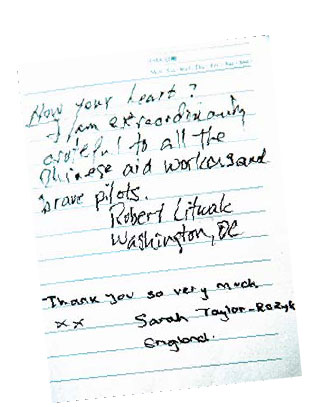 Mon Tue Wed Thu Fri Sat Sun
How your heart?
I am extraordinarily
grateful to all the
Chinese aid workers and
brave pilots.
Robert Litwak
Washington, DC
Thank you so very much
xx Sarah Taylor-
England.